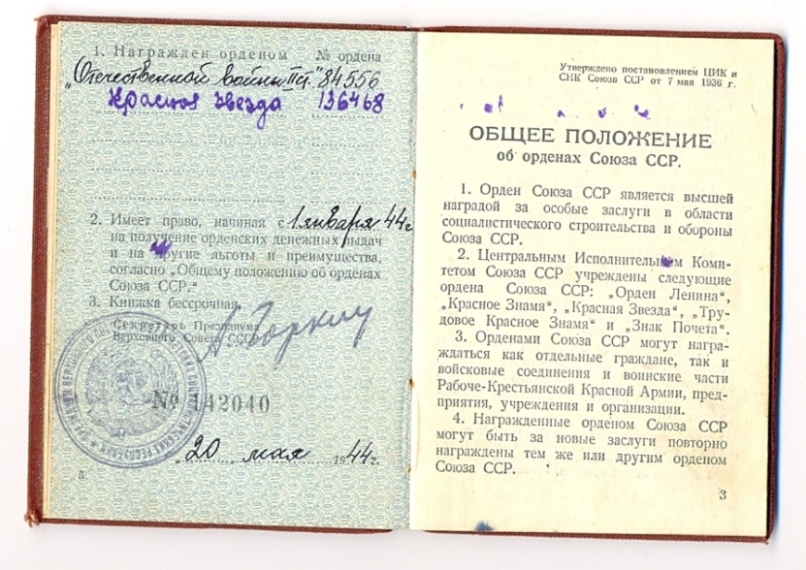 1. Награжден орденом № ордена
„Отечественной войны II ст." 84556
Красная звезда 136468
2. Имеет право, начиная с 1 января 44 г
на получение орденских денежных выдач
и на другие льготы и преимущества,
согласно „Общему положению об орденах
Союза ССР."
3. Книжка бессрочная.
Секретарь Президиума
Верховного Совета СССР
А. Горкин
№ 142040
„20 мая 1944 г.
5
Утверждено постановлением ЦИК и
СНК Союза ССР от 7 мая 1936 г.
ОБЩЕЕ ПОЛОЖЕНИЕ
об орденах Союза ССР.
1. Орден Союза ССР является высшей
наградой за особые заслуги в области
социалистического строительства и обороны
Союза ССР.
2. Центральным Исполнительным Коми-
тетом Союза ССР учреждены следующие
ордена Союза ССР: „Орден Ленина“,
„Красное Знамя“, „Красная Звезда“, „Тру-
довое Красное Знамя“ и „Знак Почета“.
3. Орденами Союза ССР могут награ-
ждаться как отдельные граждане, так и
войсковые соединения и воинские части
Рабоче-Крестьянской Красной Армии, пред-
приятия, учреждения и организации.
4. Награжденные орденом Союза ССР
могут быть за новые заслуги повторно
награждены тем же или другим орденом
Союза ССР.
3